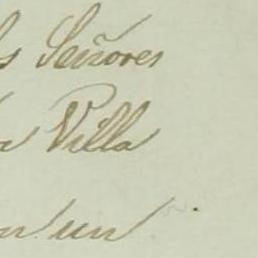 s Señores
a Villa
un